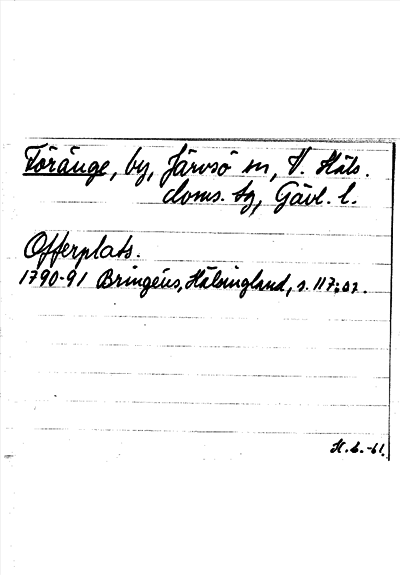 Föränge, by, Järvsö sn, V. Häls.
doms. tg, Gävl. l.
Offerplats.
1790-91 Bringéus, Hälsingland, s. 117:02.
H.L.-61.